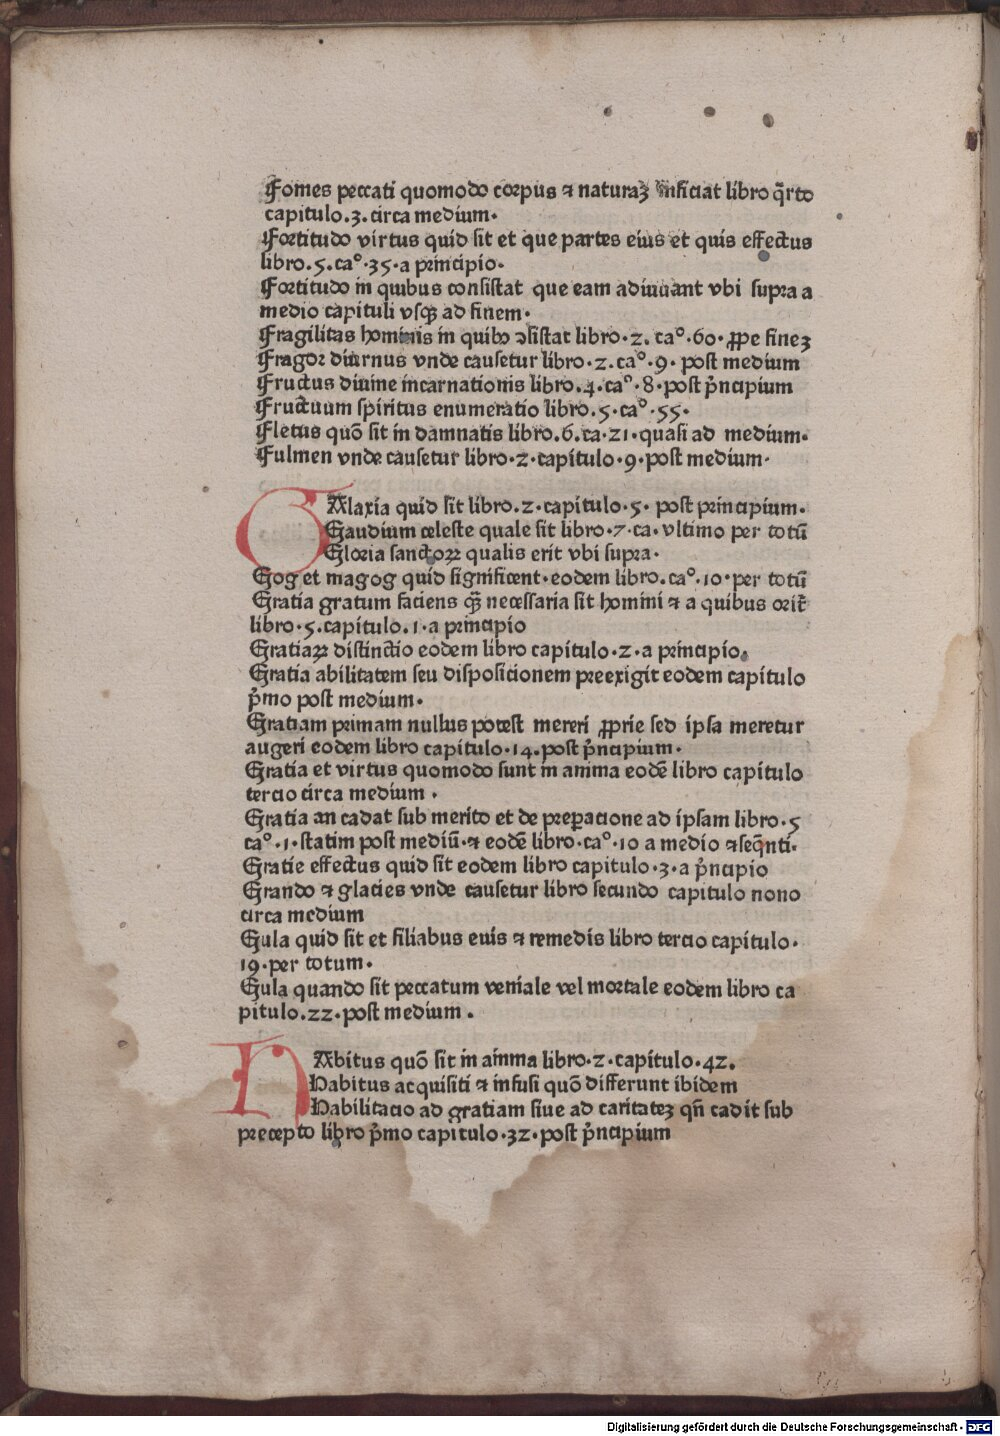 Fomes peccati quomodo corpus ⁊ naturaꝫ inficiat libro q̄rto
capitulo.3. circa medium.
Fortitudo virtus quid sit et que partes eius et quis effectus
libro.5.caº.35.a principio.
Fortitudo in quibus consistat que eam adiuuant vbi supra a
medio capituli vsqꝫ ad finem.
Fragilitas hominis in quibꝰ ꝯsistat libro.2. caº.60. ꝓpe fineꝫ
Fragor diurnus vnde causetur libro.2.caº.9. post medium
Fructus diuine incarnationis libro.4.caº.8.post p̄ncipium
Fructuum spiritus enumeratio libro.5.caº.55.
Fletus quō sit in damnatis libro.6.ca.21.quasi ad medium.
Fulmen vnde causetur libro.2.capitulo.9.post medium.
GAlaxia quid sit libro.2.capitulo.5. post principium.
Gaudium celeste quale sit libro.7.ca.vltimo per totū
Gloria sanctoꝝ qualis erit vbi supra.
Gog et magog quid significent.eodem libro.caº.10.per totū
Gratia gratum faciens qꝫ̄ necessaria sit homini ⁊ a quibus orit̄
libro.5.capitulo.1.a principio
Gratiaꝝ distinctio eodem libro capitulo.2.a principio.
Gratia abilitatem seu dispositionem preexigit eodem capitulo
p̄mo post medium.
Gratiam primam nullus potest mereri ꝓprie sed ipsa meretur
augeri eodem libro capitulo.14.post p̄ncipium.
Gratia et virtus quomodo sunt in anima eodē libro capitulo
tercio circa medium.
Gratia an cadat sub merito et de preꝑacione ad ipsam libro.5
caº.1.statim post mediū.⁊ eodē libro.caº.10 a medio ⁊seq̄nti.
Gratie effectus quid sit eodem libro capitulo.3.a p̄ncipio
Grando ⁊ glacies vnde causetur libro secundo capitulo nono
circa medium
Gula quid sit et filiabus euis ⁊ remedis libro tercio capitulo.
19.per totum.
Gula quando sit peccatum veniale vel mortale eodem libro ca
pitulo.22.post medium.
HAbitus quō sit in anima libro.2.capitulo.42.
Habitus acquisiti ⁊ infusi quō differunt ibidem
Habilitacio ad gratiam siue ad caritateꝫ qn̄ cadit sub
precepto libro p̄mo capitulo.32.post p̄ncipium
Digitalisierung gefördert durch die Deutsche Forschungsgemeinschaft - DFG